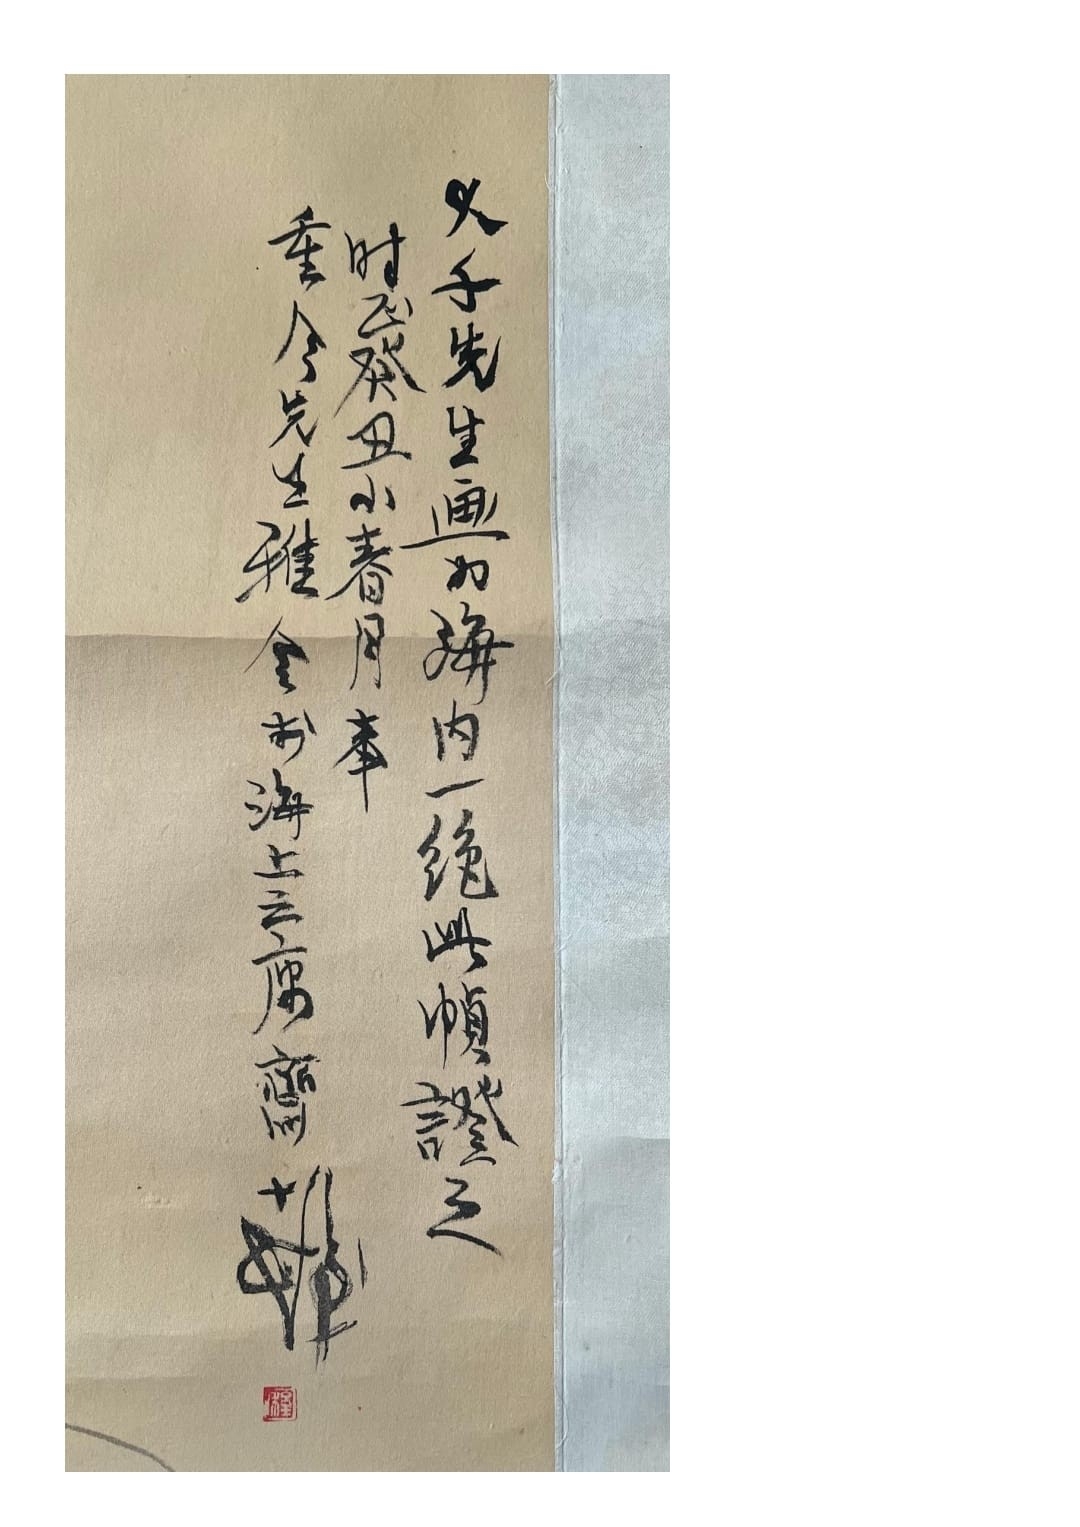 大千先生画为海内一绝此帧證之
时癸丑小春月奉
重今先生雅令於海上三齋十髮
程